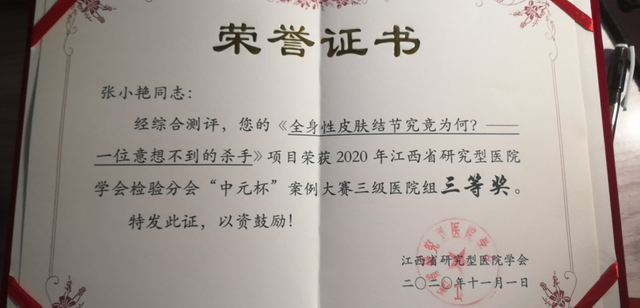 荣誉证书
张小艳同志：
经综合测评，您的《全身性皮肤结节究竟为何？——
一位意想不到的杀手》项目荣获2020年江西省研究型医院
学会检验分会“中元杯”案例大赛三级医院组三等奖。
特发此证，以资鼓励！
江西省研究型医院学会
二〇二〇年十一月一日